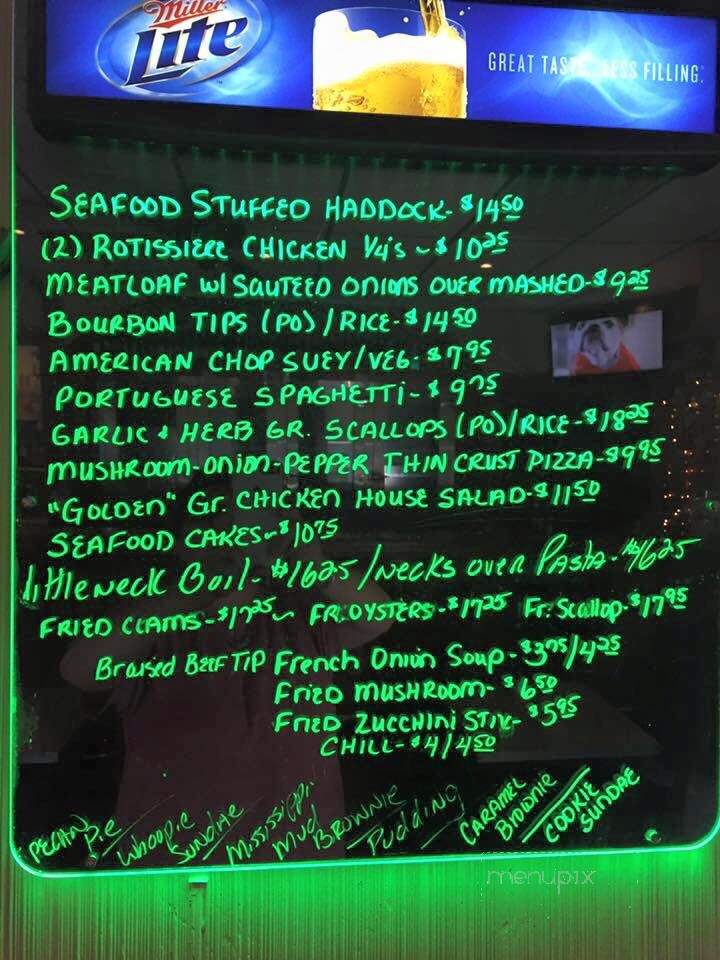 Miller
Lite
GREAT TASTE LESS FILLING.
SEAFOOD STUFFED HADDOCK- $14 50
(2) ROTISSIERE CHICKEN 1/4's ~ $10 25
MEATLOAF W/ SAUTEED ONIONS OVER MASHED-$9 25
BOURBON TIPS (PO) / RICE-$14 50
AMERICAN CHOP SUEY/VEG-$7 95
PORTUGUESE SPAGHETTI-$9 75
GARLIC & HERB GR. SCALLOPS (PO)/RICE-$18 25
MUSHROOM-ONION-PEPPER THIN CRUST PIZZA-$9 95
"GOLDEN" Gr. CHICKEN HOUSE SALAD-$11 50
SEAFOOD CAKES-$10 75
littleneck Boil-$16 25 /necks over Pasta-$16 25
FRIED CLAMS-$17 25 ~ FR. OYSTERS-$17 25 Fr. Scallop-$17 95
Braised BEEF TIP French Onion Soup-$3 75/4 25
FRIED MUSHROOM-$6 50
FRIED ZUCCHINI STIX-$5 95
CHILI-$4/4 50
PECAN Pie
Whoopie Sundae
Mississippi Mud
BROWNIE Pudding
CARAMEL Brownie
COOKIE SUNDAE
menupix